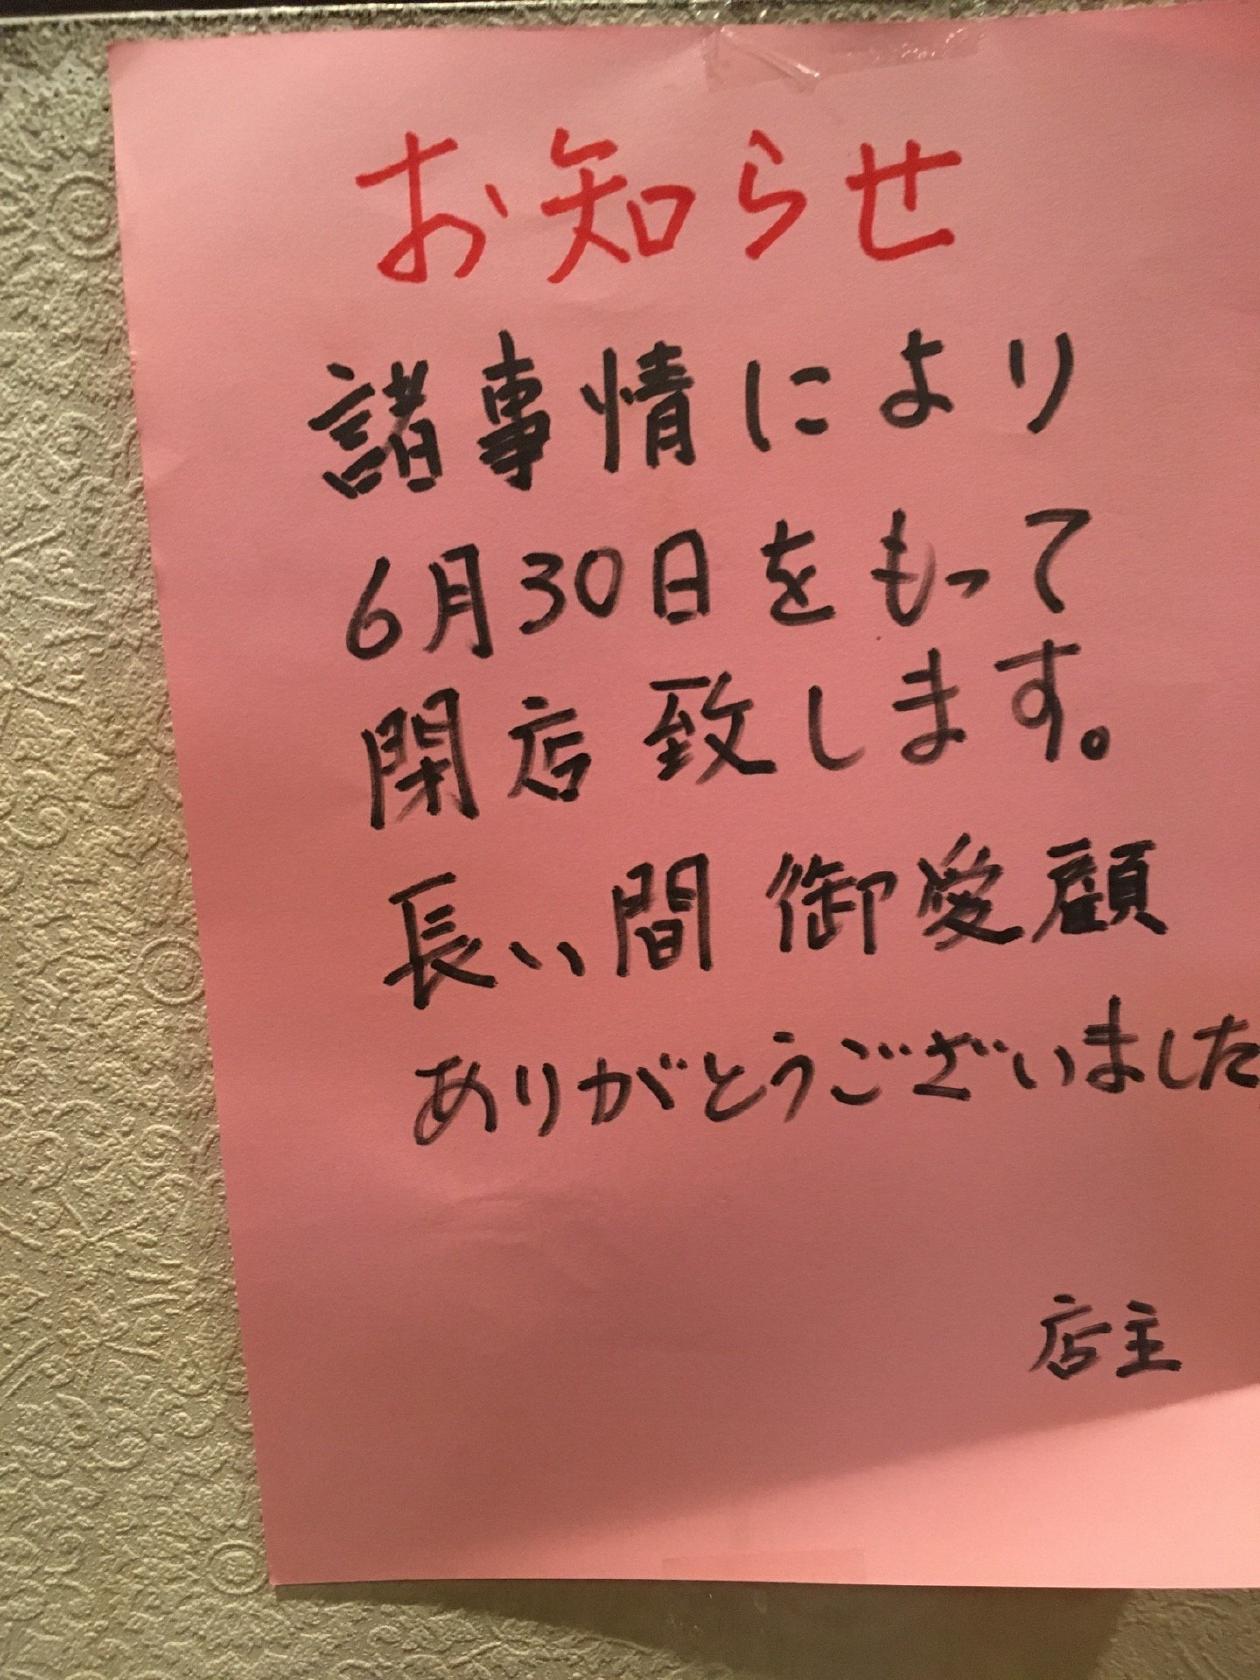 お知らせ
諸事情により
6月30日をもって
閉店致します。
長い間御愛顧
ありがとうございました
店主